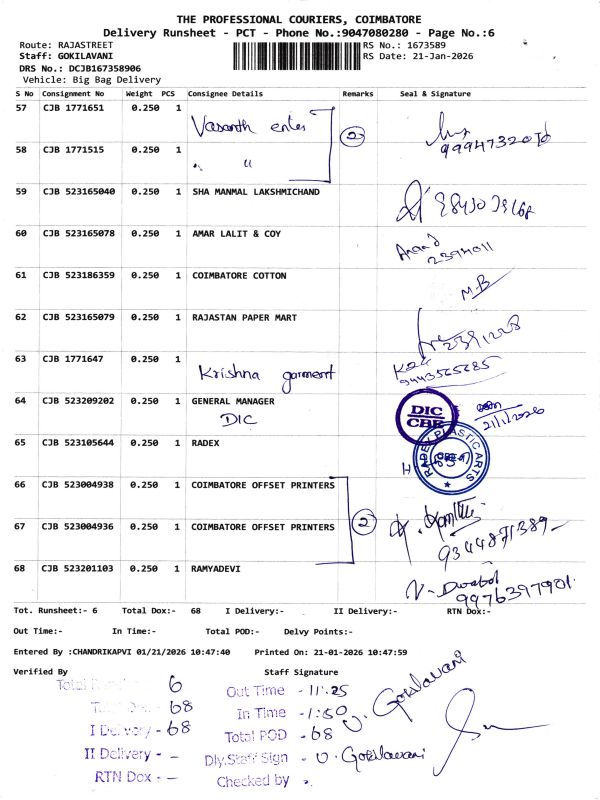 THE PROFESSIONAL COURIERS, COIMBATORE
Delivery Runsheet - PCT - Phone No.:9047080280 - Page No.:6
Route: RAJASTREET RS No.: 1673589
Staff: GOKILAVANI RS Date: 21-Jan-2026
DRS No.: DCJB167358906
Vehicle: Big Bag Delivery
S No Consignment No Weight PCS Consignee Details Remarks Seal & Signature
57 CJB 1771651 0.250 1 Vasanth enter 2
58 CJB 1771515 0.250 1 " "
59 CJB 523165040 0.250 1 SHA MANMAL LAKSHMICHAND
60 CJB 523165078 0.250 1 AMAR LALIT & COY Anand
2394011
61 CJB 523186359 0.250 1 COIMBATORE COTTON M.B
62 CJB 523165079 0.250 1 RAJASTAN PAPER MART 2391228
63 CJB 1771647 0.250 1 Krishna garment
9443565685
64 CJB 523209202 0.250 1 GENERAL MANAGER DIC
CBE
DIC 21/1/2026
65 CJB 523105644 0.250 1 RADEX PLASTIC ARTS
66 CJB 523004938 0.250 1 COIMBATORE OFFSET PRINTERS
67 CJB 523004936 0.250 1 COIMBATORE OFFSET PRINTERS 2 9344871389
68 CJB 523201103 0.250 1 RAMYADEVI
9976397901
Tot. Runsheet:- 6 Total Dox:- 68 I Delivery:- II Delivery:- RTN Dox:-
Out Time:- In Time:- Total POD:- Delvy Points:-
Entered By :CHANDRIKAPVI 01/21/2026 10:47:40 Printed On: 21-01-2026 10:47:59
Verified By Staff Signature
Total 6 Out Time - 11:25 U. Gokilavani
Total - 68 In Time - 1:50
I Delivery - 68 Total POD - 68
II Delivery - - Dly.Staff Sign - U. Gokilavani
RTN Dox - - Checked by -